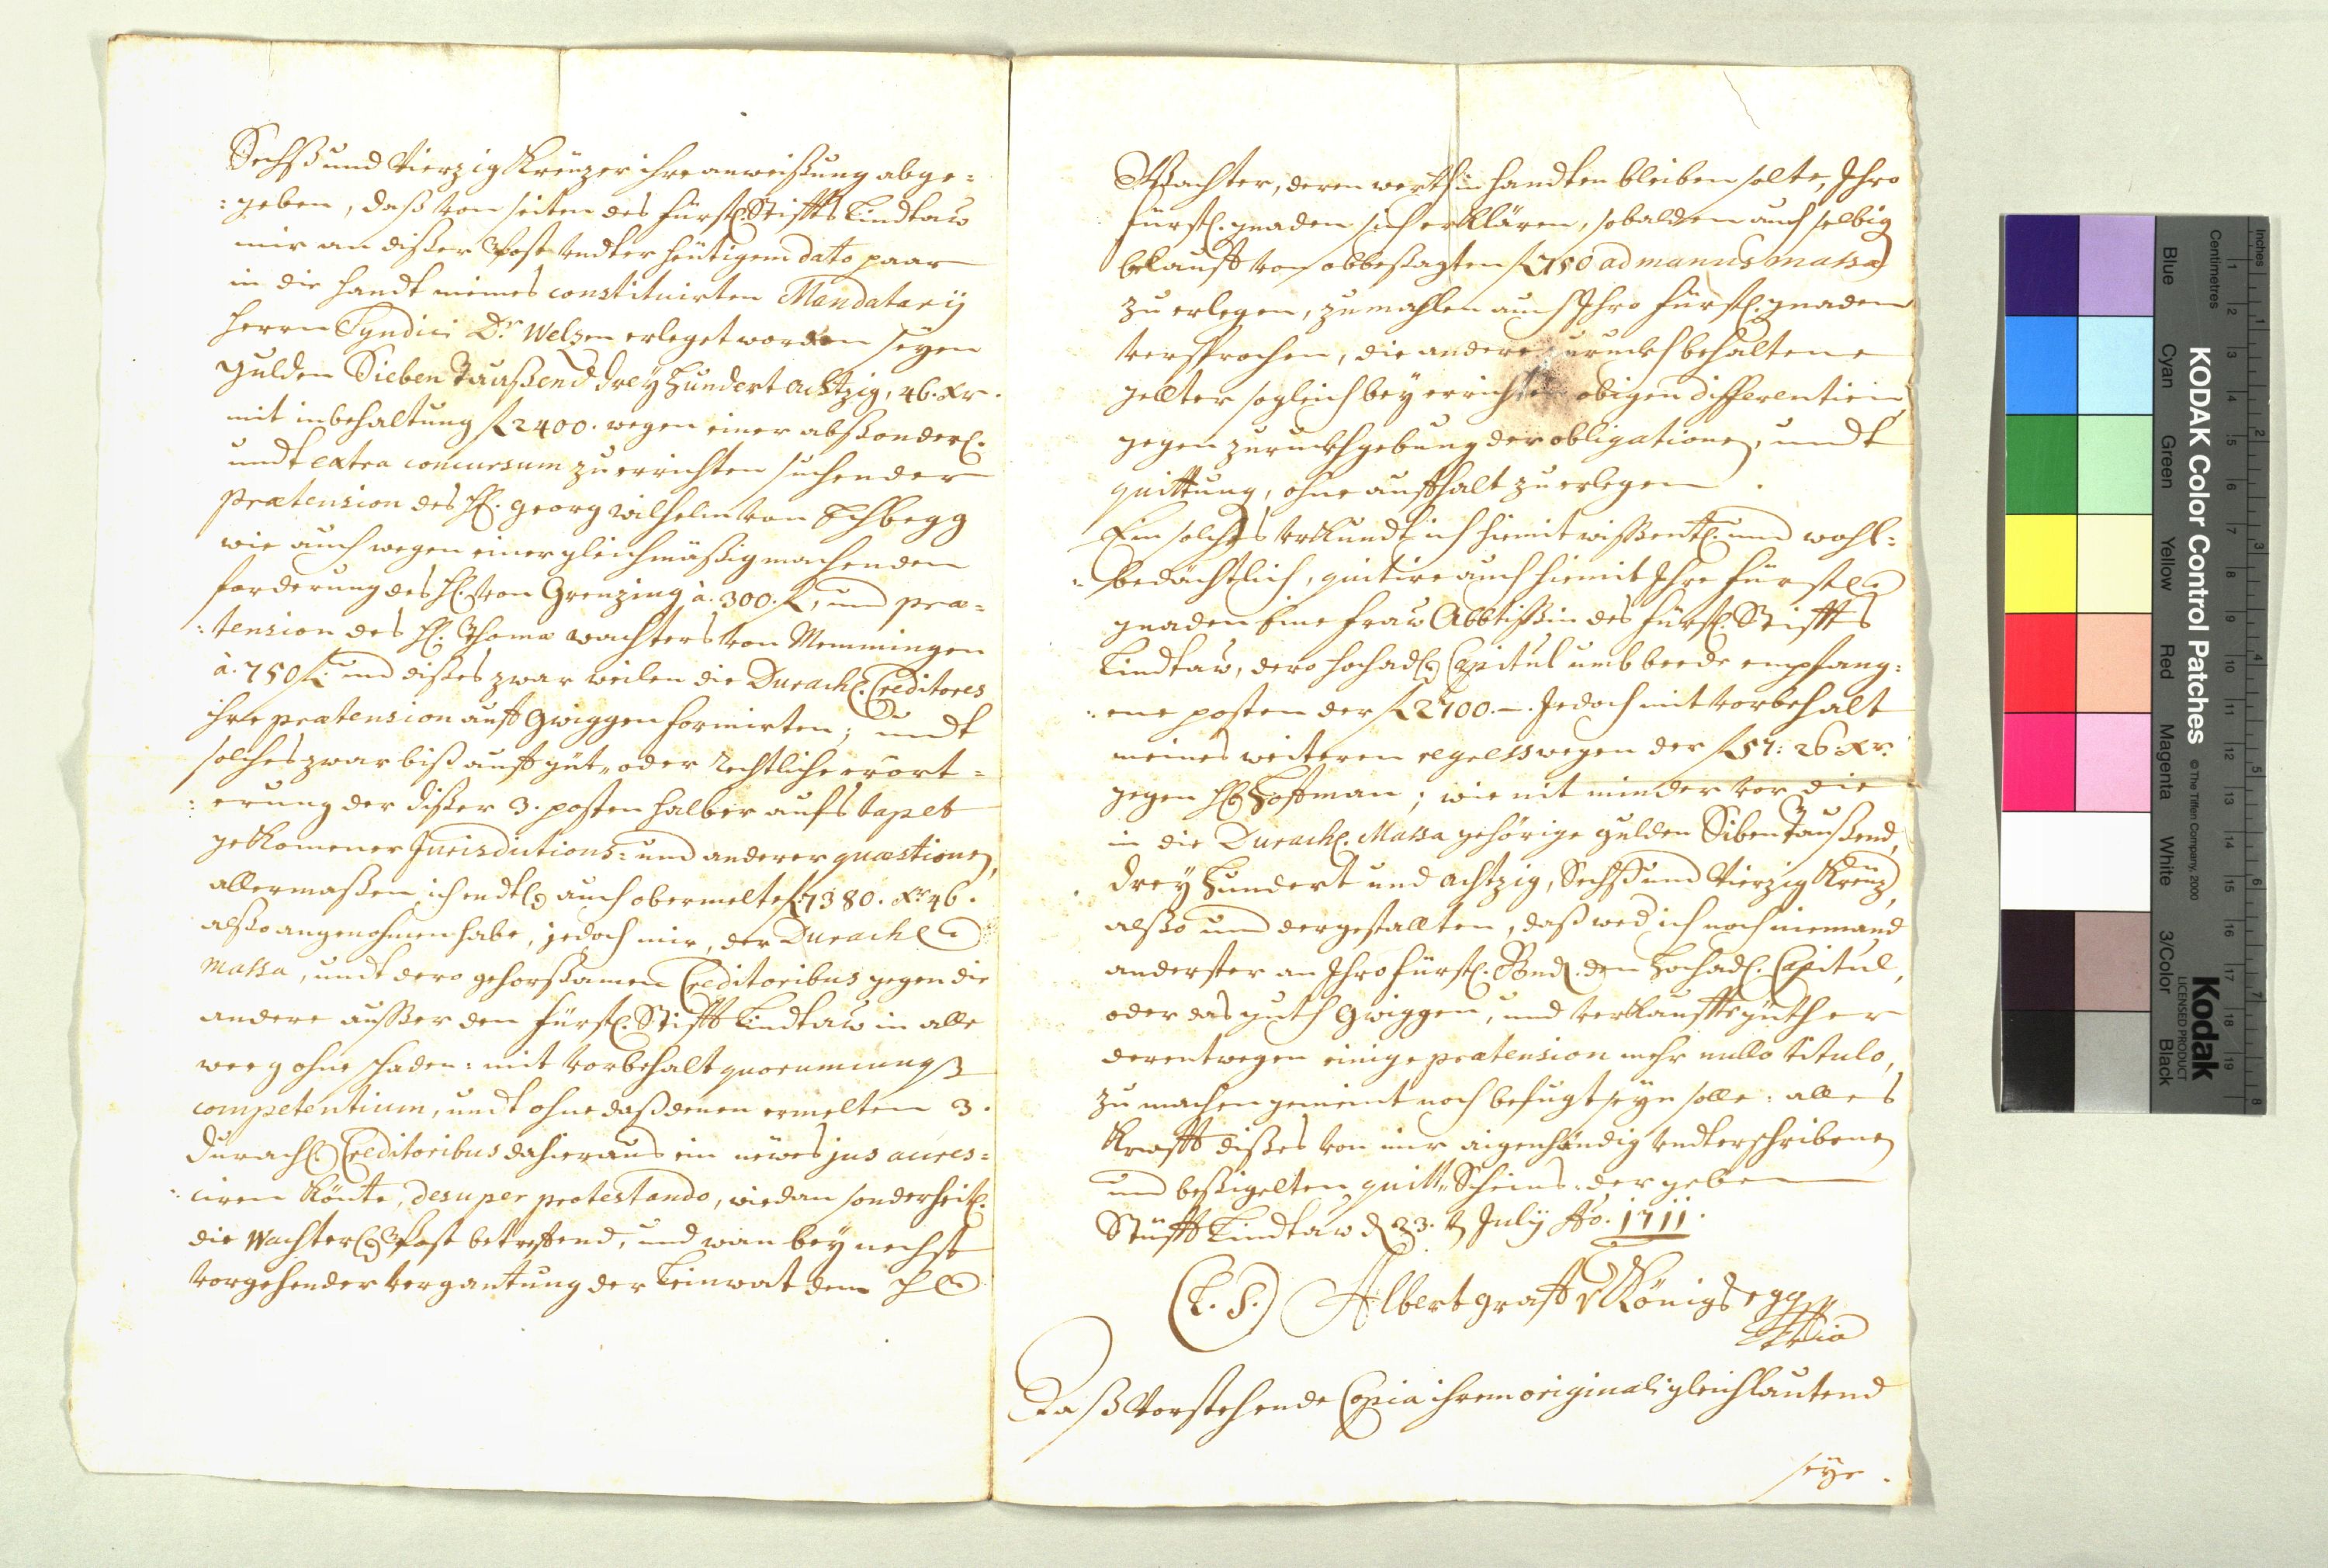 Sechß und Vierzig Kreuzer ihre anweißung abge=
:geben, daß von seiten des fürstl. Stiffts Lindtaw
mir an dißer Post undter heütigem dato paar
in die handt meines constituirten Mandatarij
herrn Syndici Dr. Welzen erleget worden seyen
gulden Sieben Taußend drey Hundert achtzig, 46. xr.
mit inbehaltung fl 2400. wegen einer abßonderl.
undt extra concursum zu errichten suchender
Prætension des H. Georg Wilhelm von Echbegg
wie auch wegen einer gleichmäßig machenden
forderung des H. von Grenzing à. 300. fl, und præ=
:tension des H. Thomæ Wachters von Memmingen
à. 750 fl. und dißes zwar weilen die Durachl. Creditores
ihre prætension auff Gwiggen formirten; undt
solches zwar biß auff güt„ oder rechtliche erört=
:erung der dißer 3. posten halber aufs tapet
gekomener Jurisdictions= und anderer quæstionen,
allermaßen ich endtl. auch obermelte fl 7380. xr 46.
alßo angenohmen habe, jedoch mir, der Durachl.
Massa, undt dero gehorßamen Creditoribus gegen die
andere außer dem fürstl. Stifft Lindtaw in alle
weeg ohne schaden: mit vorbehalt quorumcunqs
competentium, undt ohne daß denen ermelten 3.
Durachl. Creditoribus dahieraus ein newes jus acres=
:ciren könte, desuper protestando, wie dan sonderheitl.
die Wachterl. Post betreffend, und wan bey nechst
vorgehender vergantung der Leinwat dem H.
Wachter, deren werth in handten bleiben solte, Ihro
fürstl. gnaden sich erklären, sobalden auch selbig
belaufft von obbesagten fl 750 ad manus massæ
zu erlegen, zumahlen auch Ihro fürstl. gnaden
versprochen, die andere zuruckh behaltene
gellter sogleich bey errichten obigen differentien,
gegen zuruckhgebung der obligationen, undt
quittung, ohne auffhalt zu erlegen.
Ein solches urkundt ich hiemit wißentl. und wohl=
:bedächtlich, quitire auch hiemit Ihre fürstl.
gnaden Eine fraw Abbtißin des fürstl. Stiffts
Lindtaw, dero hochadl. Capitul umb beede empfang:
:ene posten der fl 2700.—. Jedoch mit vorbehalt
meines weiteren regeess wegen der fl 57: 26 xr.
gegen H. Hoffman; wie nit minder vor die
in die Durachl. Massa gehörige gulden Siben Taußend,
drey Hundert und achtzig, Sechß und Vierzig Kreüz,
alßo und dergestallten, daß wed ich noch niemand
anderster an Ihro fürstl. Gnd. den Hochadl. Capitul,
oder das guth Gwiggen, und verkauffte güther
derentwegen einige prætension mehr nullo titulo,
zu machen gemeint noch befugt seyn solle: alles
Krafft dißes von mir aigenhändig undterschribenen
und besigelten quitt„ Scheins: der geben
Stüfft Lindtaw d 23. t July Ao. 1711.
(L. S.) Albert graff v Königsegg
Daß Vorstehende Copia ihrem originali gleichlautend
seye.
Inches
Centimetres
KODAK Color Control Patches
© The Tiffen Company, 2000
Kodak
LICENSED PRODUCT
Blue Cyan Green Yellow Red Magenta White 3/Color Black